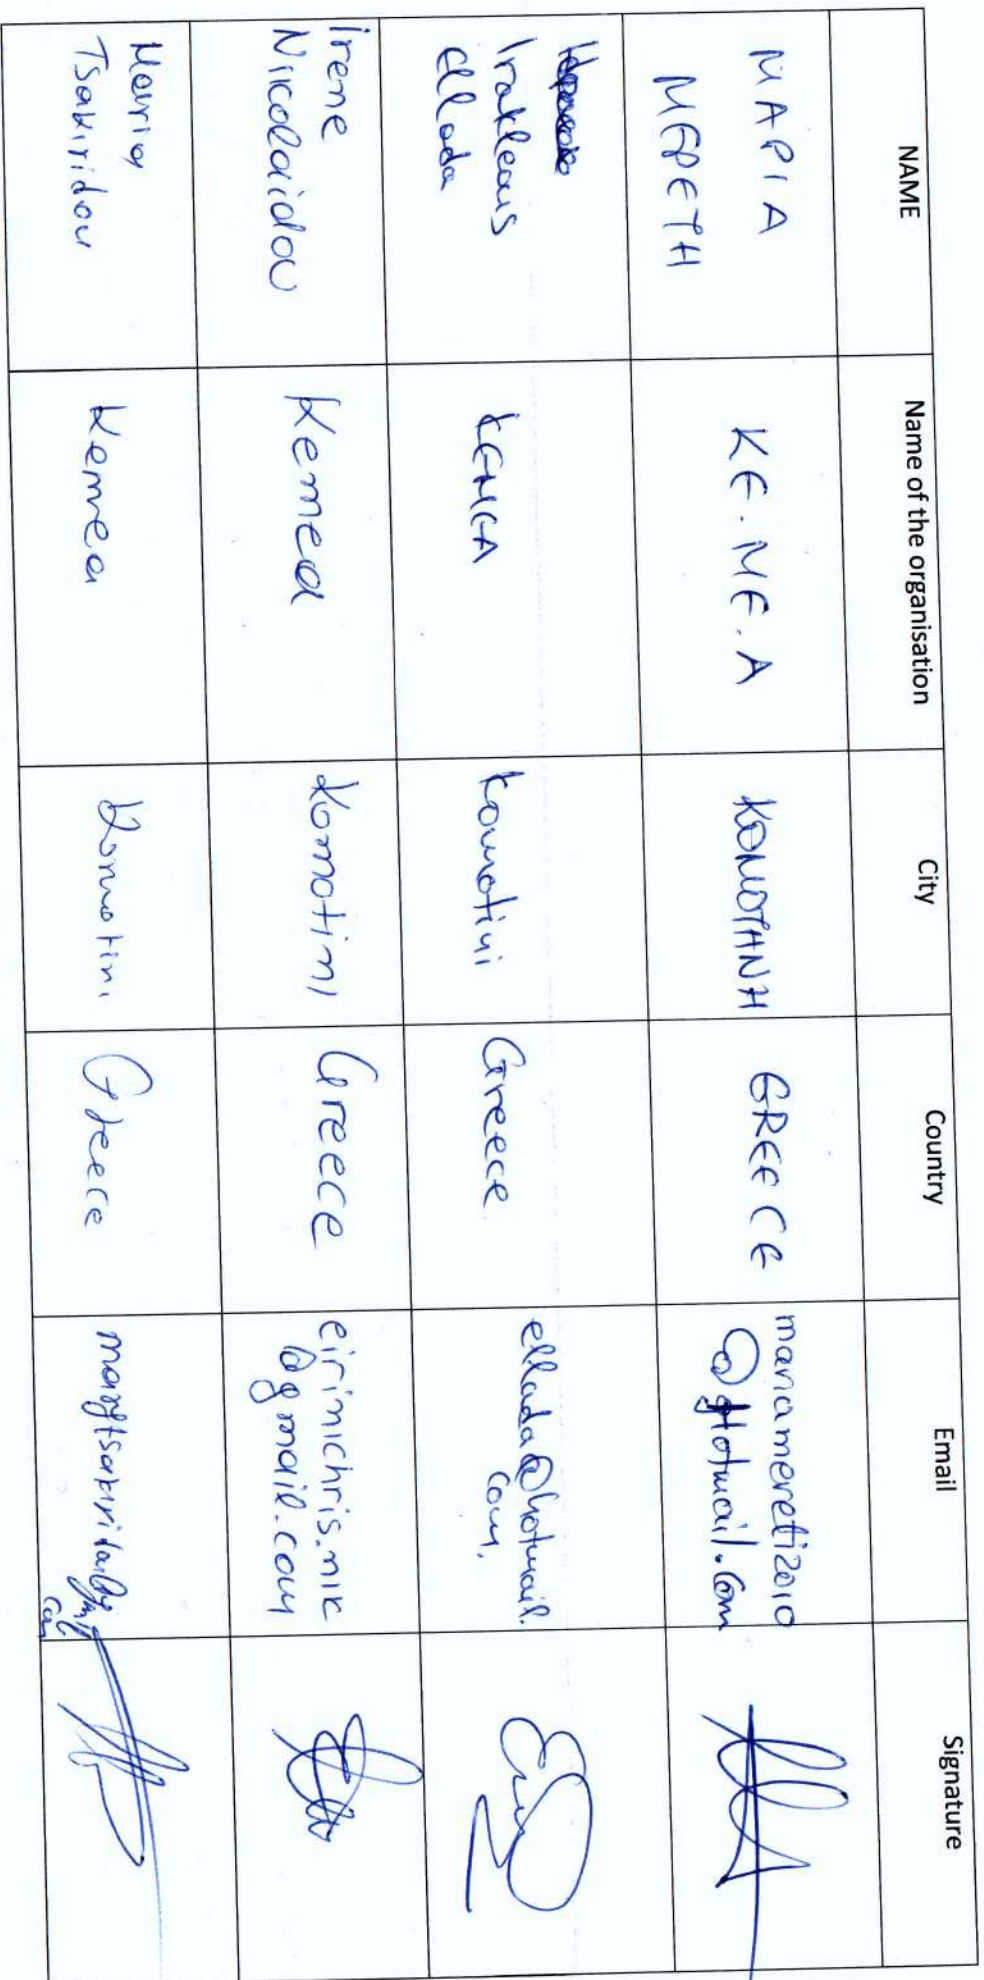 NAME
Name of the organisation
City
Country
Email
Signature
ΜΑΡΙΑ
ΜΕΡΕΤΗ
ΚΕ.ΜΕ.Α
ΚΟΜΟΤΗΝΗ
GREECE
mariamereti2010
@Hotmail.com
Irakleous
Ellada
KEMEA
Komotini
Greece
ellada@hotmail.
com,
Irene
Nikolaidou
Kemea
Komotini
Greece
eirinichris.nik
@gmail.com
Maria
Tsakiridou
Kemea
Komotini
Greece